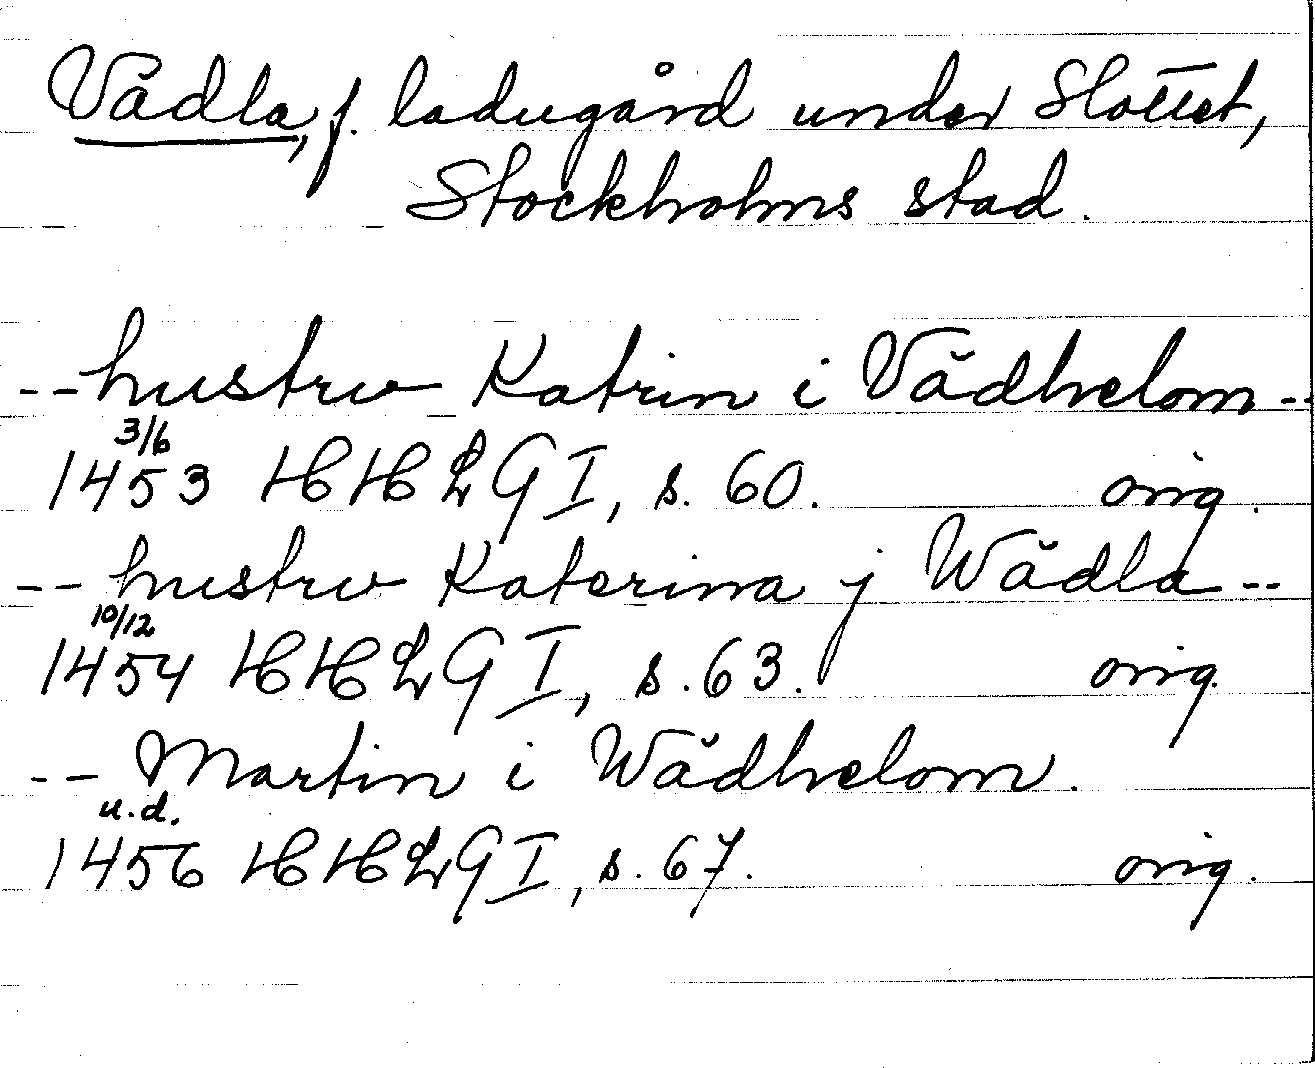 Vädla, f. ladugård under Slottet,
Stockholms stad.
-- hustrv Katrin i Vädhelom --
3/6
1453 HHLG I, s. 60. orig.
-- hustrv Katerina j Wädla --
10/12
1454 HHLG I, s. 63. orig.
-- Martin i Wädhelom.
u.d.
1456 HHLG I, s. 67. orig.